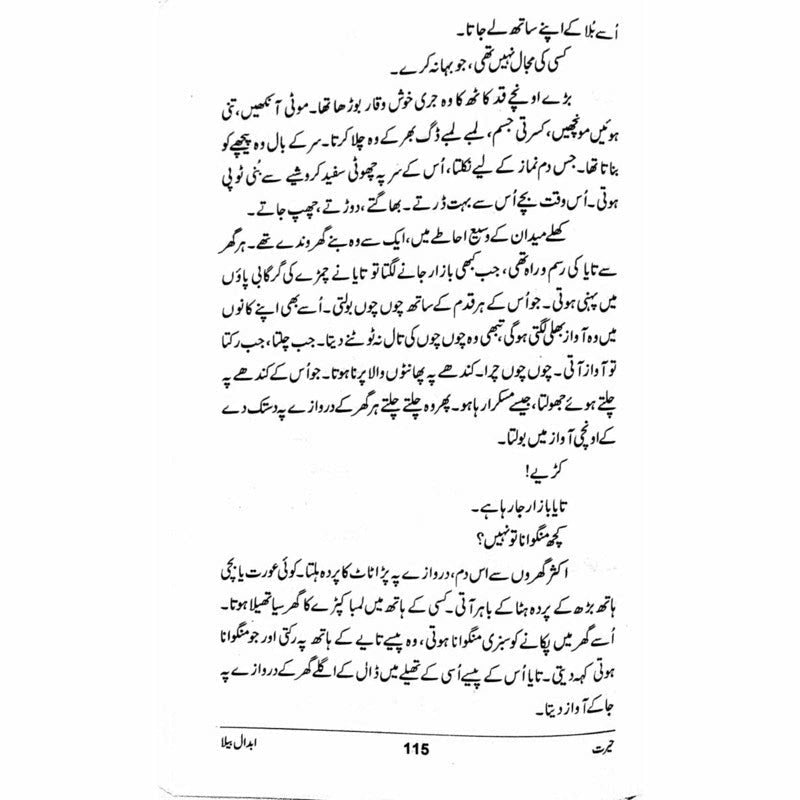 اُسے بُلا کے اپنے ساتھ لے جاتا۔
کسی کی مجال نہیں تھی، جو بہانہ کرے۔
بڑے اونچے قد کاٹھ کا وہ جری خوش وقار بوڑھا تھا۔ موٹی آنکھیں، تنی
ہوئیں مونچھیں، کسرتی جسم، لمبے لمبے ڈگ بھر کے وہ چلا کرتا۔ سر کے بال وہ پیچھے کو
بناتا تھا۔ جس دم نماز کے لیے نکلتا، اُس کے سر پہ چھوٹی سفید کروشیے سے بُنی ٹوپی
ہوتی۔ اُس وقت بچے اُس سے بہت ڈرتے۔ بھاگتے، دوڑتے، چھپ جاتے۔
کھلے میدان کے وسیع احاطے میں، ایک سے وہ بنے گھروندے تھے۔ ہر گھر
سے تایا کی رسم و راہ تھی، جب کبھی بازار جانے لگتا تو تایا نے چمڑے کی گرگابی پاؤں
میں پہنی ہوتی۔ جو اُس کے ہر قدم کے ساتھ چوں چوں بولتی۔ اُسے بھی اپنے کانوں
میں وہ آواز بھلی لگتی ہوگی، تبھی وہ چوں چوں کی تال نہ ٹوٹنے دیتا۔ جب چلتا، جب رکتا
تو آواز آتی۔ چوں چوں چرا۔ کندھے پہ پھانٹوں والا پرنا ہوتا۔ جو اُس کے کندھے پہ
چلتے ہوئے جھولتا، جیسے مسکرا رہا ہو۔ پھر وہ چلتے چلتے ہر گھر کے دروازے پہ دستک دے
کے اونچی آواز میں بولتا۔
کڑیے!
تایا بازار جا رہا ہے۔
کچھ منگوانا تو نہیں؟
اکثر گھروں سے اس دم، دروازے پہ پڑا ٹاٹ کا پردہ ہلتا۔ کوئی عورت یا بچی
ہاتھ بڑھ کے پردہ ہٹا کے باہر آتی۔ کسی کے ہاتھ میں لمبا کپڑے کا گھر سیا تھیلا ہوتا۔
اُسے گھر میں پکانے کو سبزی منگوانا ہوتی، وہ پیسے تایے کے ہاتھ پہ رکتی اور جو منگوانا
ہوتی کہہ دیتی۔ تایا اُس کے پیسے اُسی کے تھیلے میں ڈال کے اگلے گھر کے دروازے پہ
جا کے آواز دیتا۔
حیرت 115 ابدال بیلا